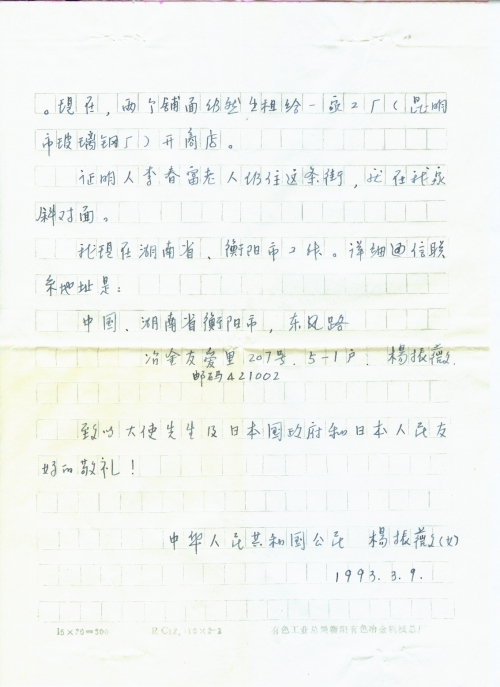 。現在，两个铺面仍然出租给一家工厂（昆明
市玻璃钢厂）开商店。
证明人李春富老人仍住这条街，就在我家
斜对面。
我現在湖南省、衡阳市工作。详细通信联
系地址是：
中国、湖南省衡阳市，东风路
冶金友爱里207号．5-1户．楊振薇．
邮码421002
致以大使先生及日本国政府和日本人民友
好的敬礼！
中华人民共和國公民 楊振薇（女）
1993.3.9.
15×20=300
有色工业总 衡阳有色冶金机械总厂